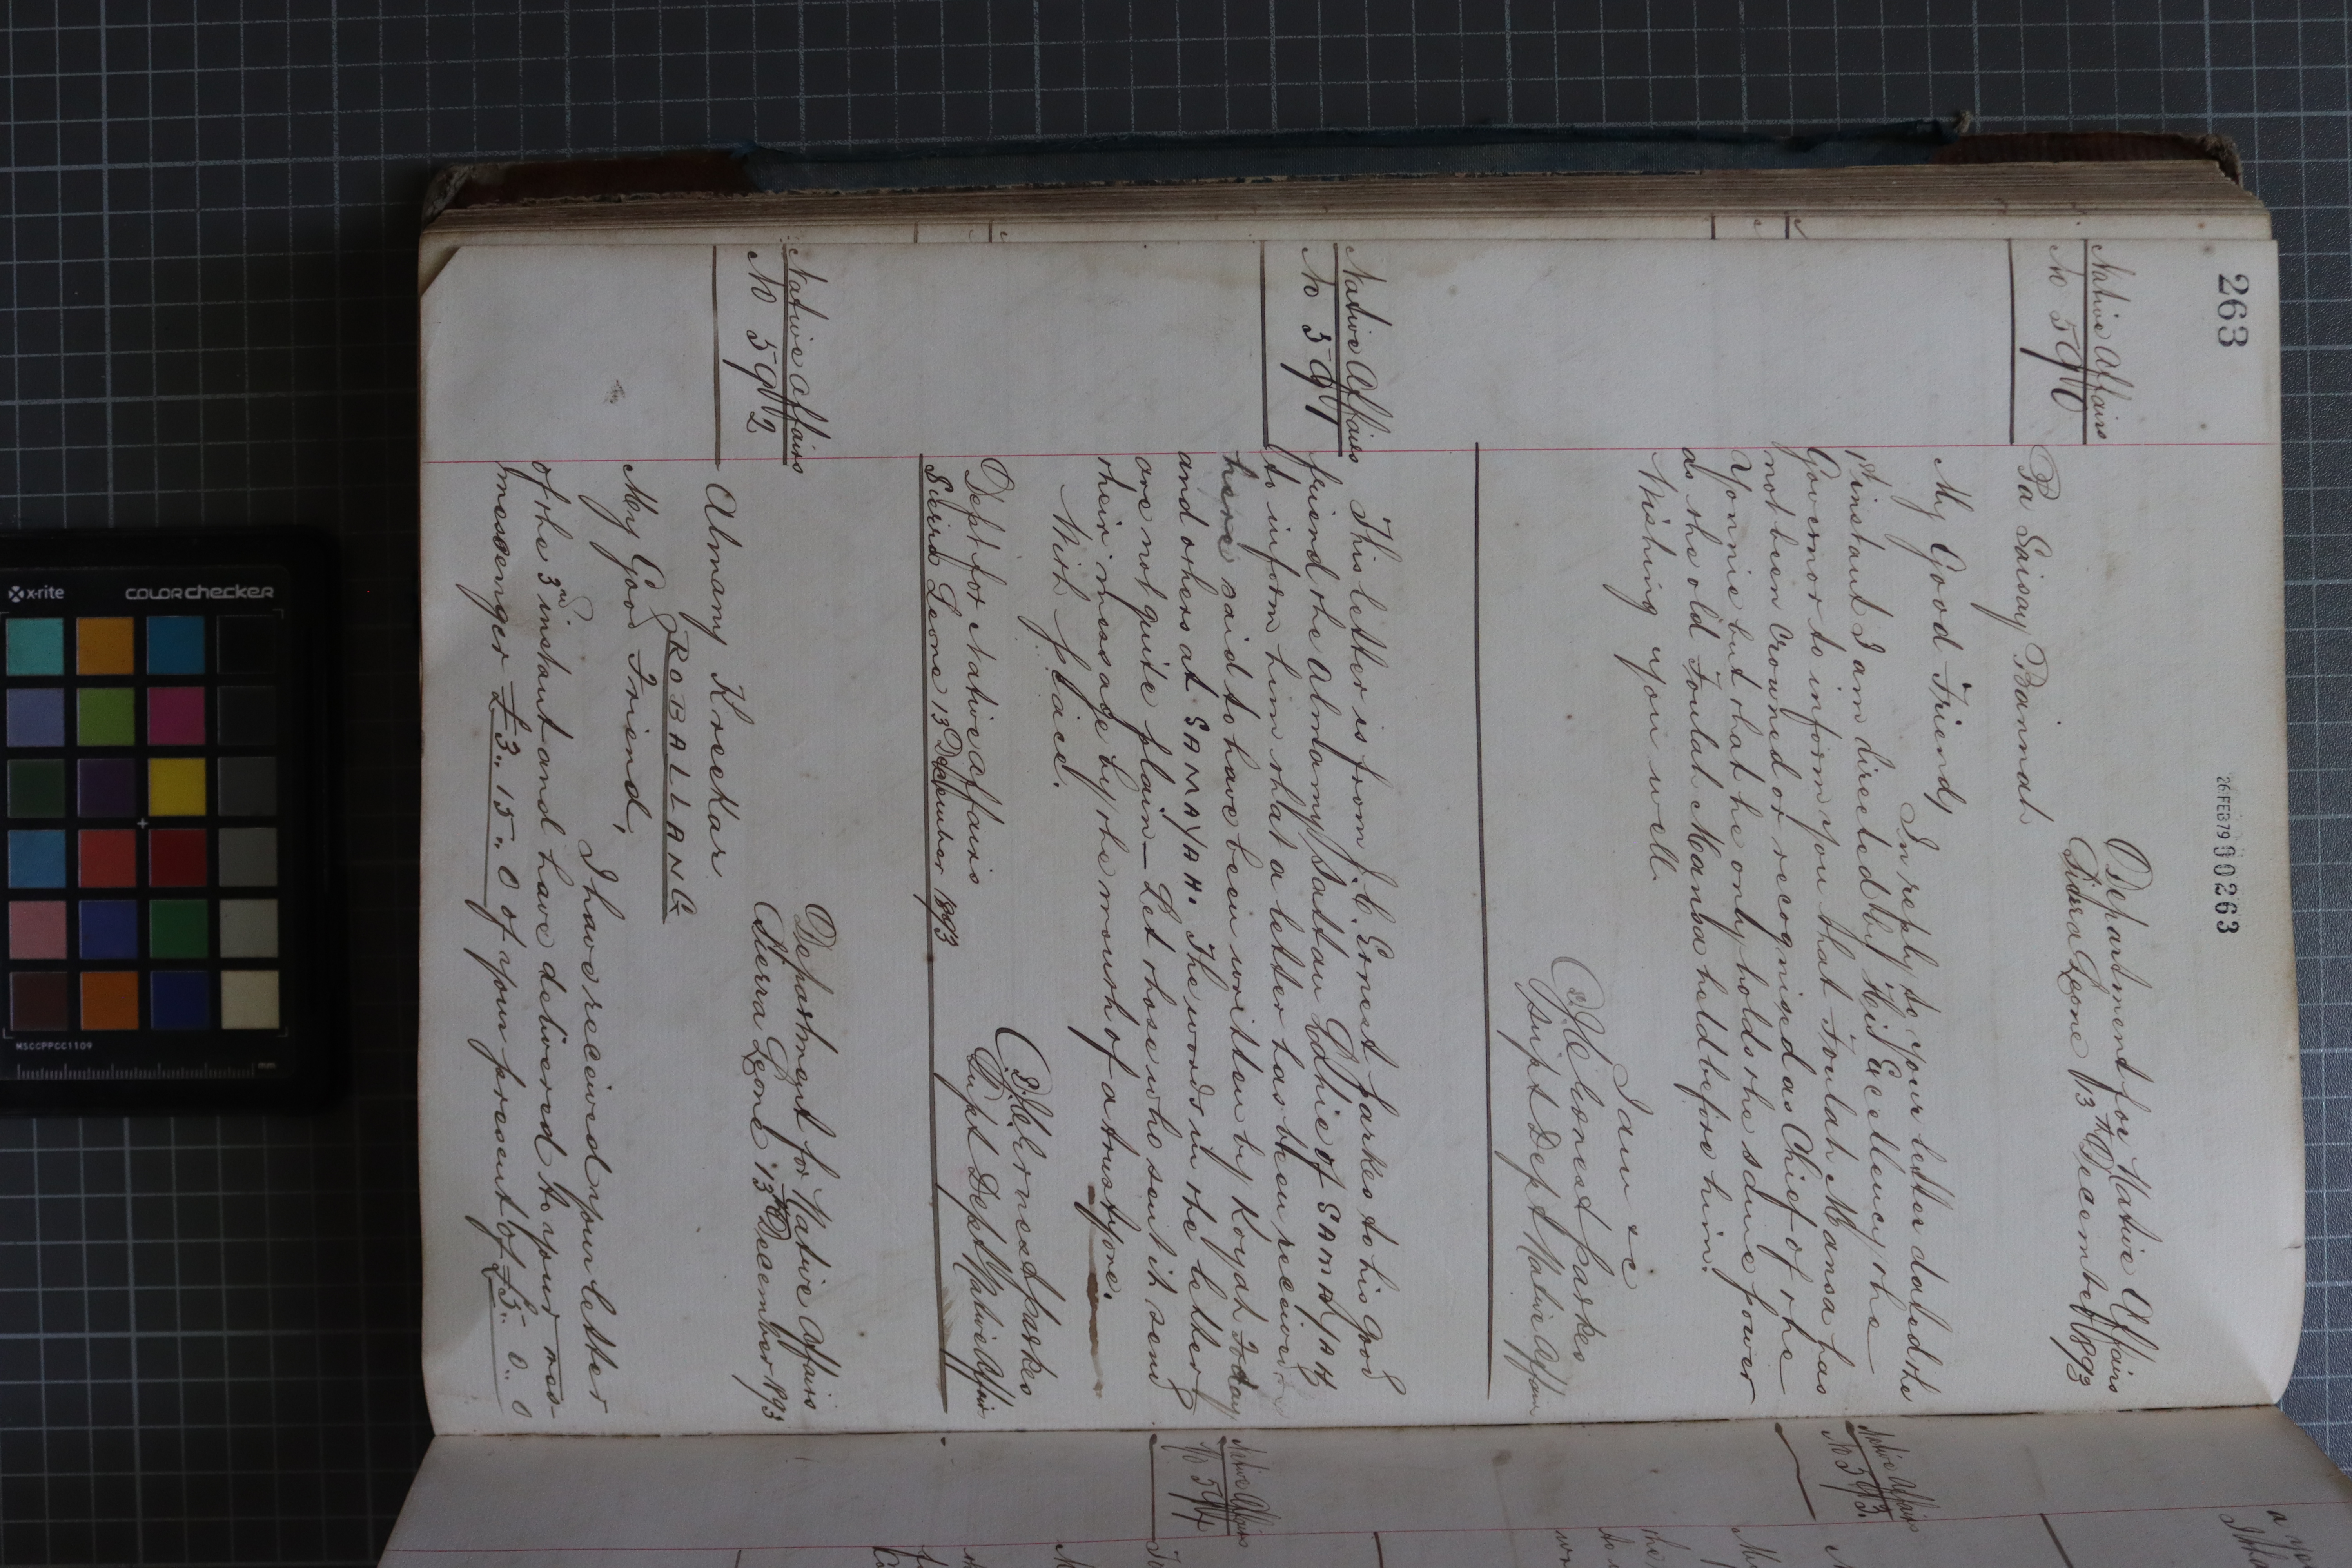 263
26 FEB 79 00263
Department for Native Affairs
Sierra Leone 13th December 1893
Native Affairs
No 590
Pa Saisay Bainnah
My Good Friend,
In reply to your letter dated the
1st instant I am directed by His Excellency the
Governor to inform you that Foulah Mansa has
not been crowned or recognised as Chief of the
Yonnie but that he only holds the same power
as the old Foulah Mansa held before him.
Wishing you well.
I am &c
J.C. Ernest Parkes
Supt Dept Native Affairs
Native Affairs
No 591
This letter is from J.C. Ernest Parkes to his good
friend the Almamy Sattan Lahie of SAMAYAH
to inform him that a letter has been received
here said to have been written by Koyah Foday
and others at SAMAYAH. The words in the letter
are not quite plain — Let those who sent it send
their message by the mouth of a trusty one.
With peace.
J.C. Ernest Parkes
Supt Dept Native Affairs
Dept for Native Affairs
Sierra Leone 13 December 1893
Native Affairs
No 592
Department for Native Affairs
Sierra Leone 13th December 1893
Almamy Kreekar
ROBALLANG
My Good Friend,
I have received your letter
of the 3rd instant and have delivered to your mes-
messenger £3.. 15.. 0 of your present of £5.. 0.. 0
Native Affairs
No 593
Native Affairs
No 594